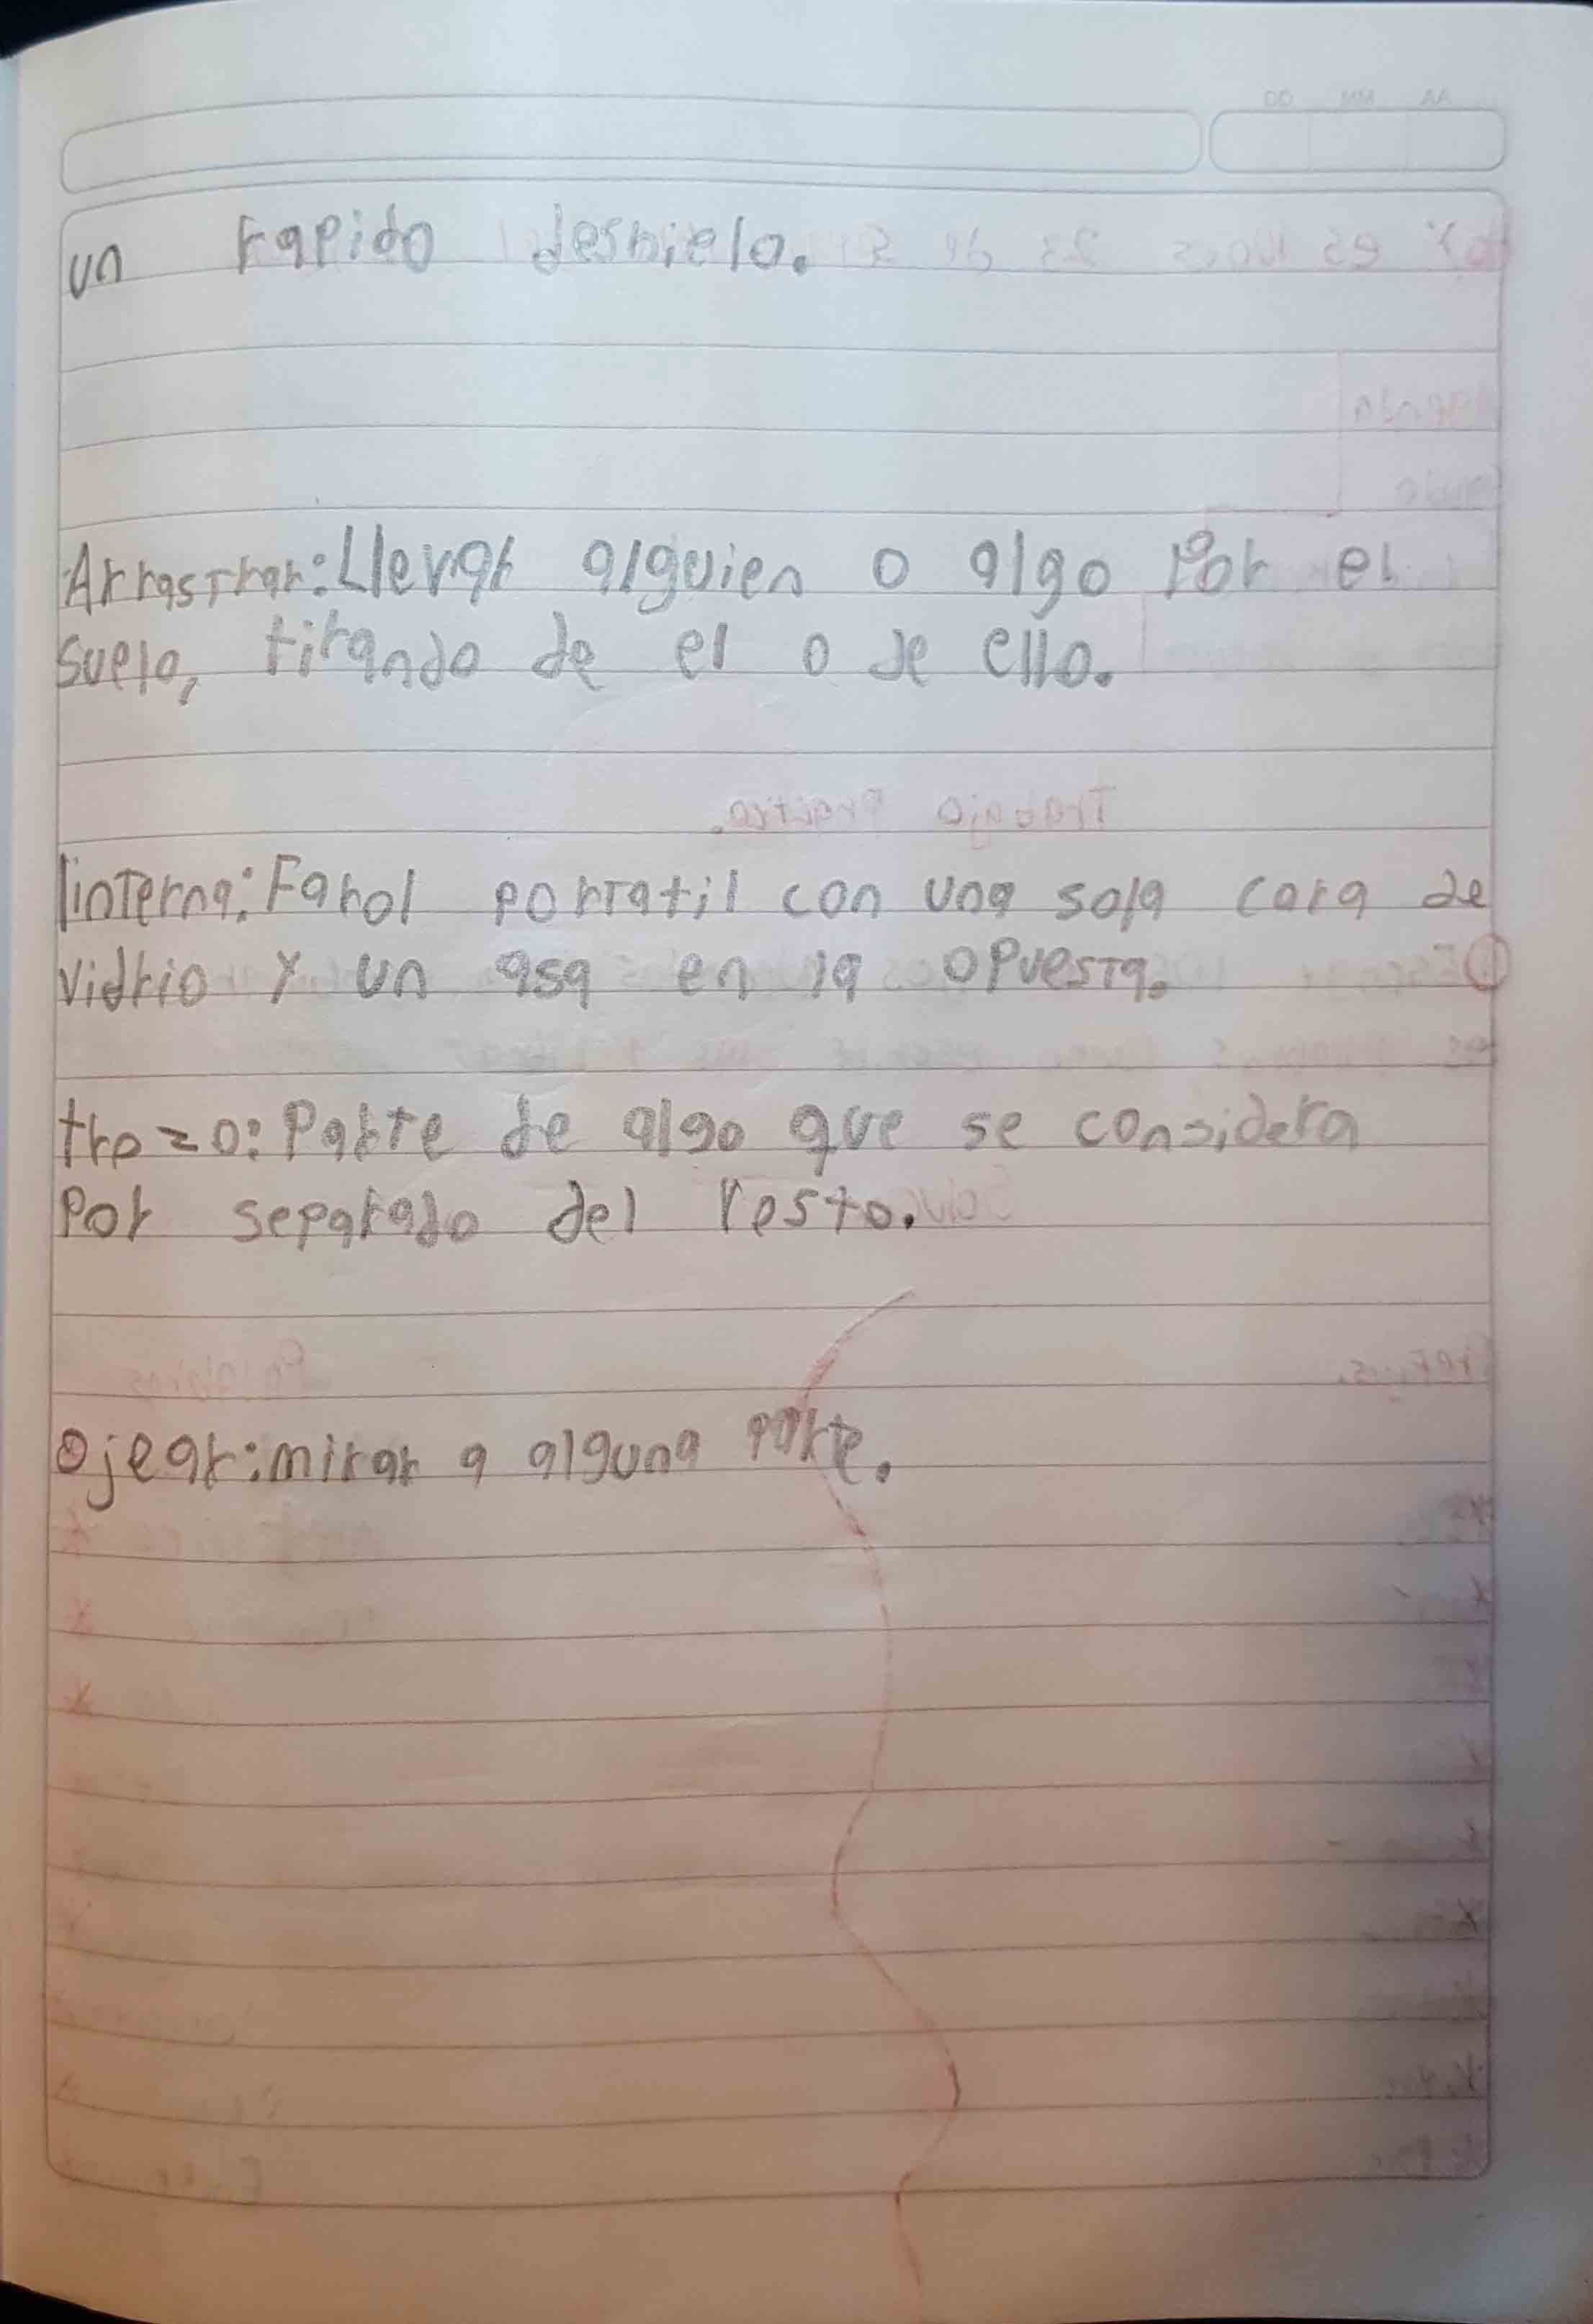 DD MM AA
un rapido deshielo.
Arrastrar: Llevar alguien o algo por el
suelo, tirando de el o de ello.
linterna: Farol portatil con una sola cara de
vidrio y un asa en la opuesta.
trozo: Parte de algo que se considera
por separado del resto.
Ojear: mirar a alguna parte.